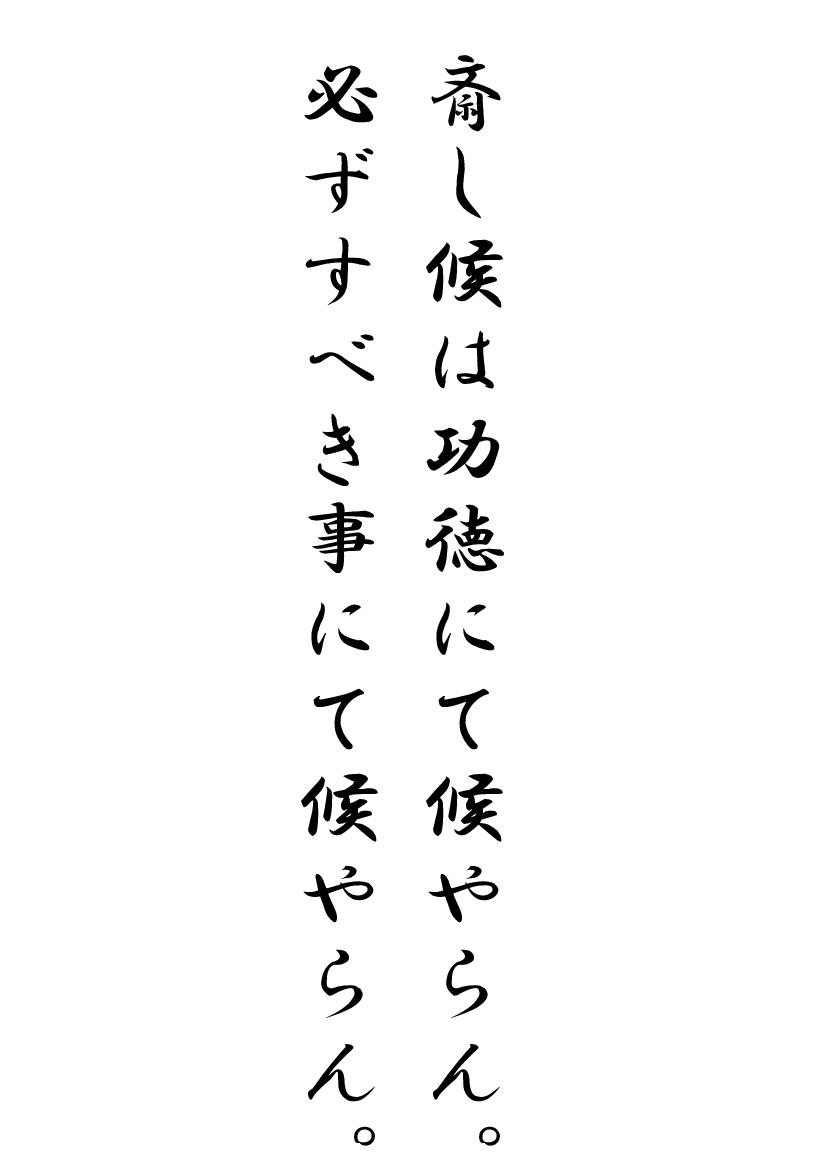 斎し候は功徳にて候やらん。
必ずすべき事にて候やらん。